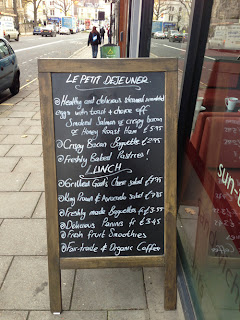 LE PETIT DEJEUNER
Healthy and delicious steamed scrambled
eggs with toast & choice off
Smoked Salmon or crispy bacon
or Honey Roast Ham £5.95
Crispy Bacon Baguette £2.95
Freshly Baked Pastries!
LUNCH
Grilled Goat's Cheese salad
King Prawn & Avocado salad
Freshly made Baguettes fr £3.55
Delicious Paninis fr £3.45
Fresh fruit Smoothies
Fair-trade & Organic Coffee